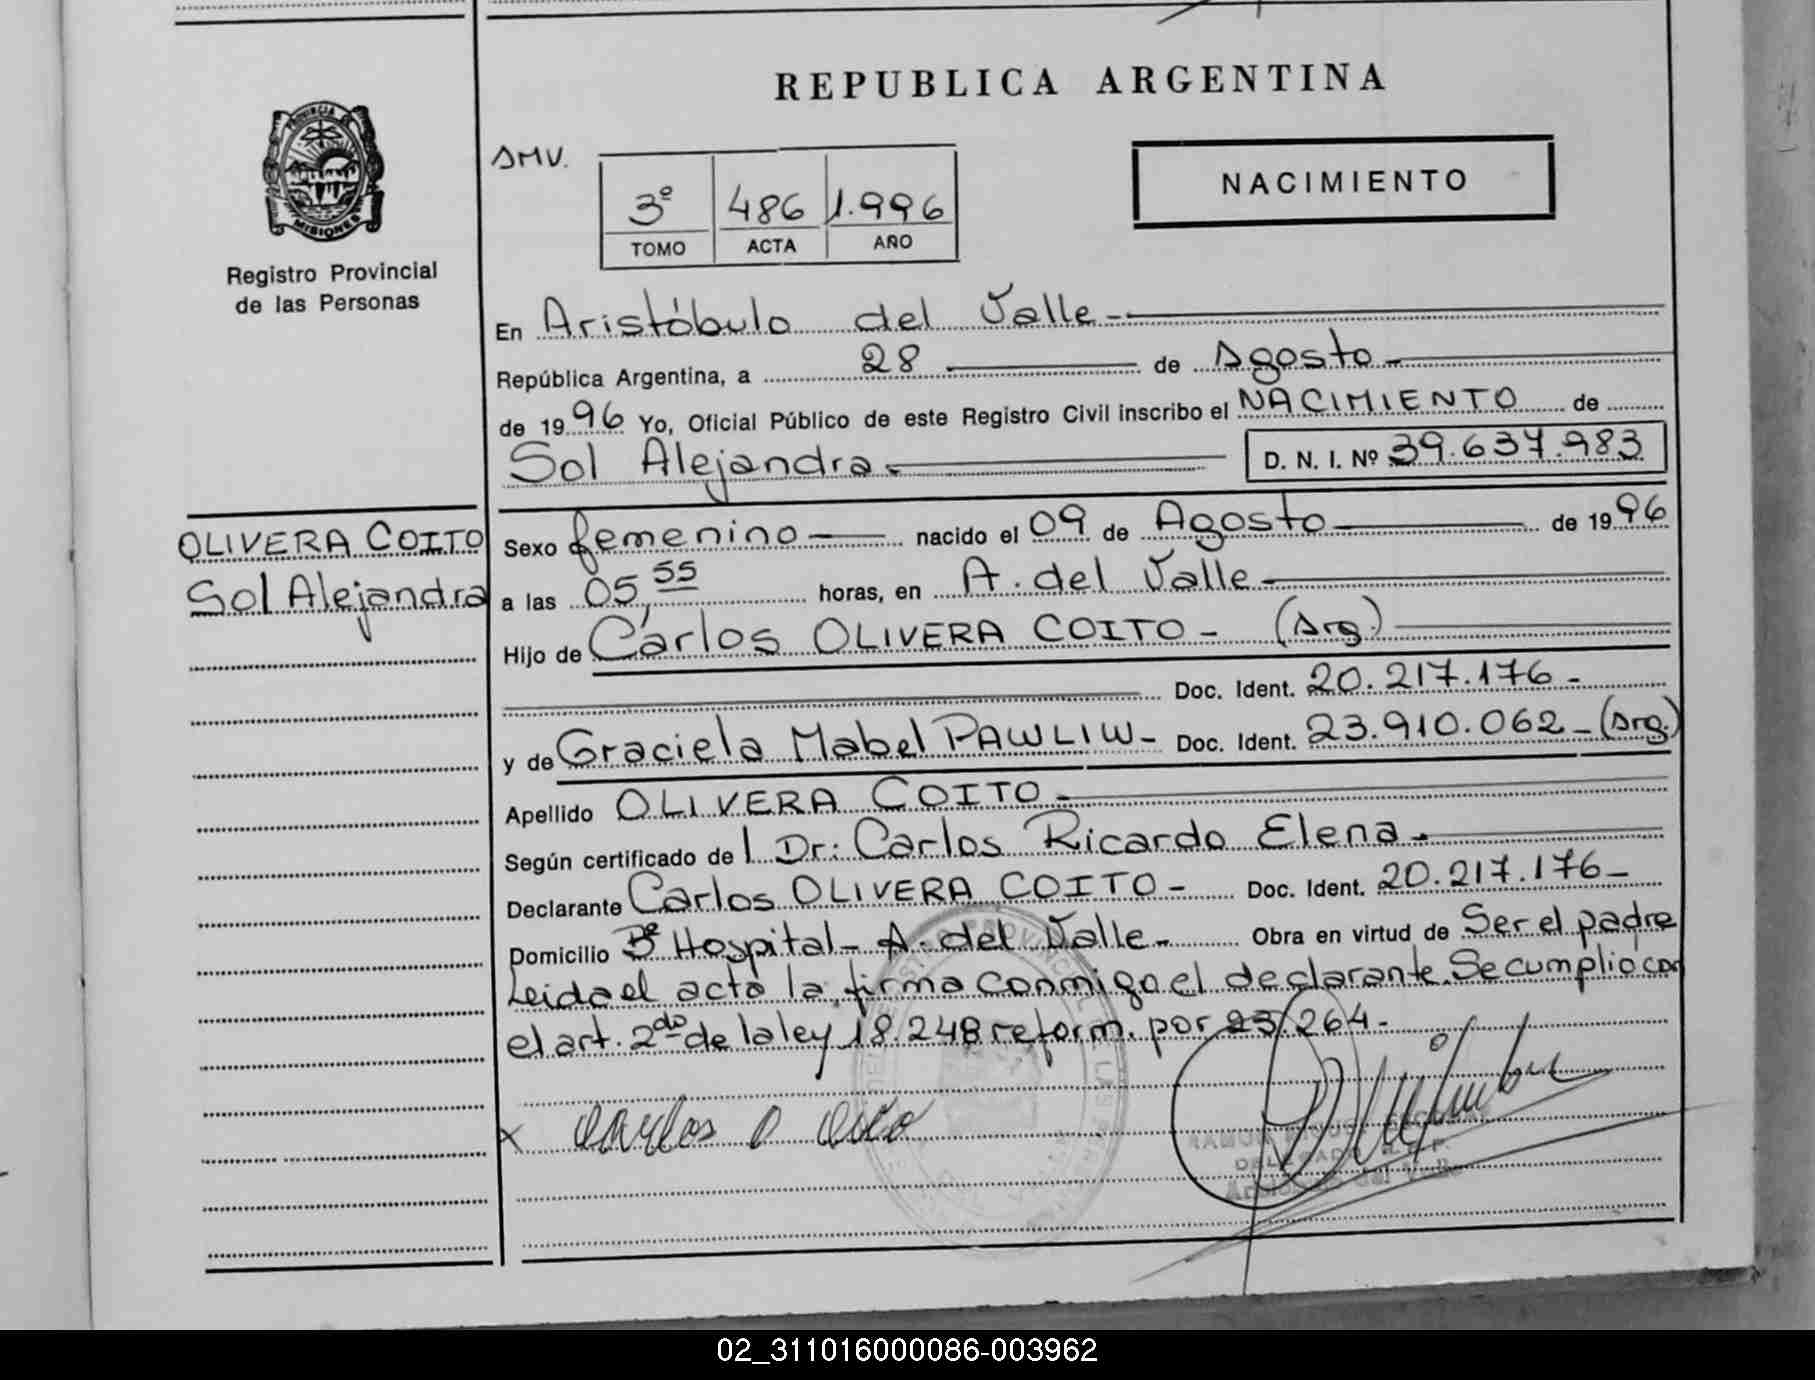 REPUBLICA ARGENTINA
PROVINCIA DE
MISIONES
Registro Provincial
de las Personas
SMV.
3º 486 1.996
TOMO ACTA AÑO
NACIMIENTO
En Aristóbulo del Valle.-
República Argentina, a 28 de Agosto-
de 1996 Yo, Oficial Público de este Registro Civil inscribo el NACIMIENTO de
Sol Alejandra.- D. N. I. Nº 39.637.983
OLIVERA COITO
Sol Alejandra
Sexo femenino nacido el 09 de Agosto de 1996
a las 05,55 horas, en A. del Valle.-
Hijo de Carlos OLIVERA COITO - (Arg)
Doc. Ident. 20.217.176 -
y de Graciela Mabel PAWLIW- Doc. Ident. 23.910.062-(Arg.)
Apellido OLIVERA COITO.-
Según certificado de l Dr: Carlos Ricardo Elena.-
Declarante Carlos OLIVERA COITO- Doc. Ident. 20.217.176-
Domicilio Bº Hospital- A. del Valle- Obra en virtud de Ser el padre
Leida el acta la firma conmigo el declarante. Se cumplio con
el art. 2do de la ley 18.248 reform. por 23.264-
x Carlos O
DELEGADO R.P.P.
Aristóbulo del Valle
02_311016000086-003962